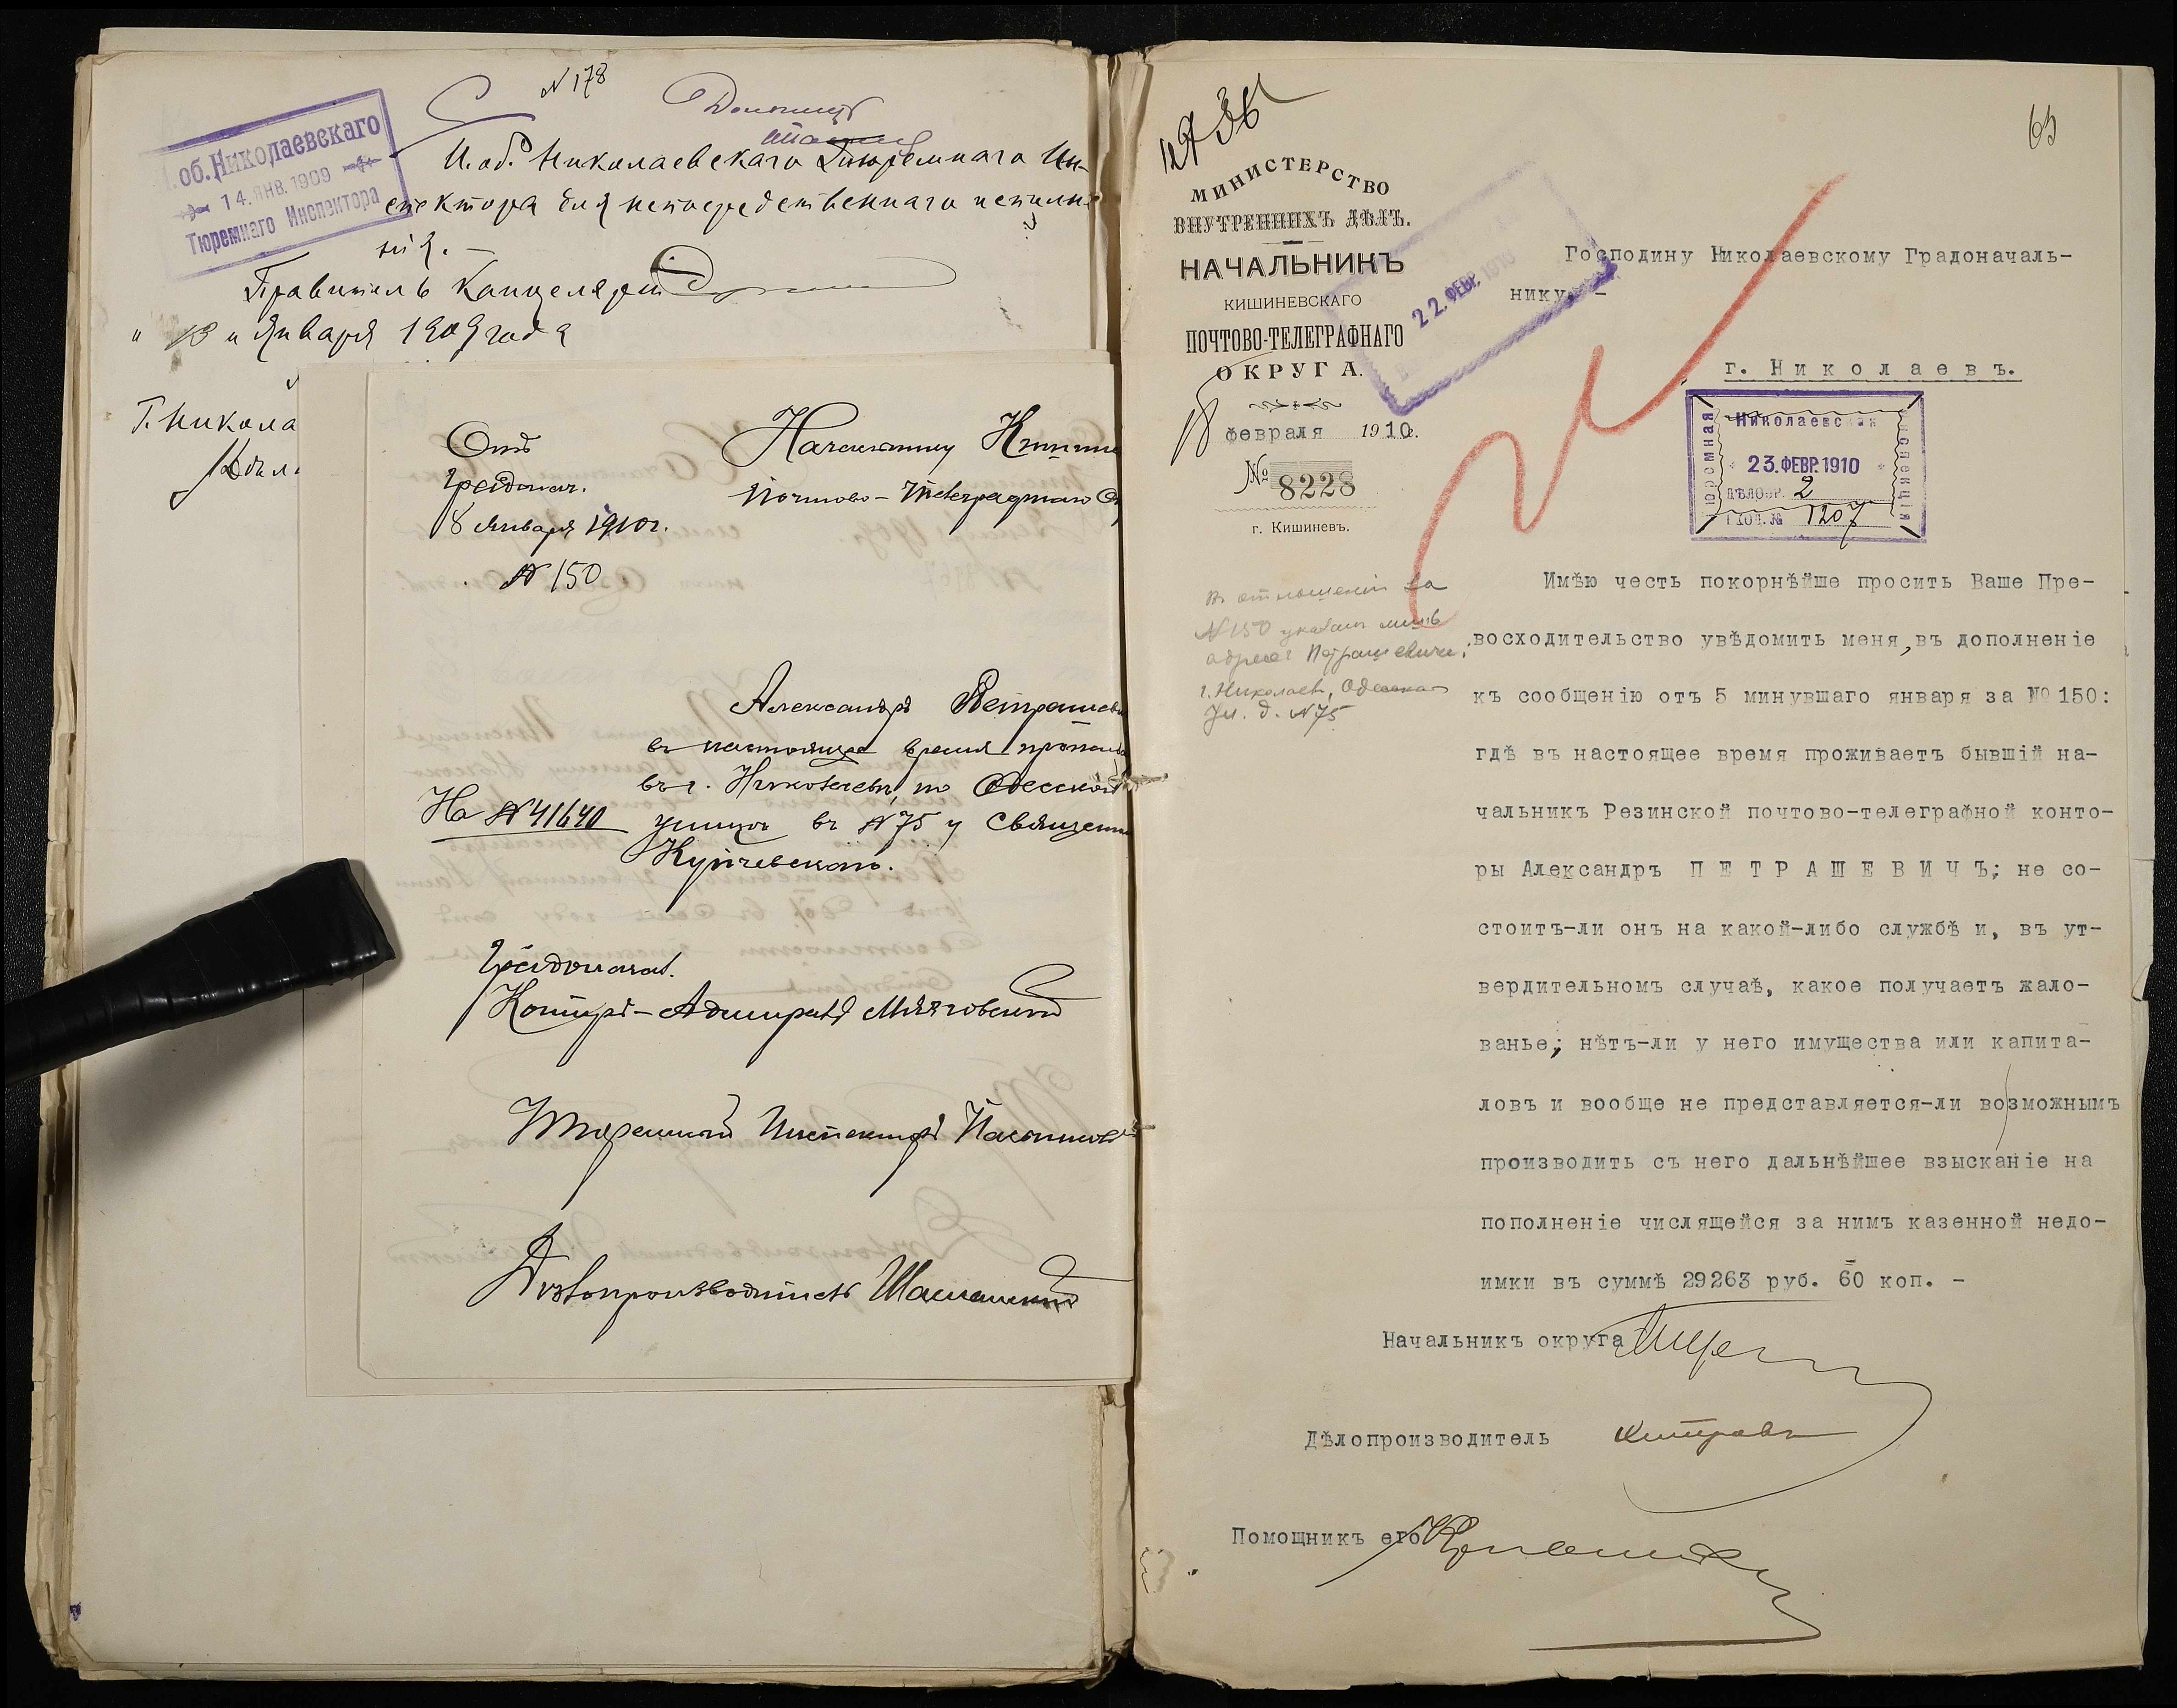 N 178
И.об. Николаевскаго
14. ЯНВ. 1909
Тюремнаго Инспектора
И. об. Николаевскаго Тюремнаго Ин-
спектора для непосредственнаго исполне
нія. —
Правитель Канцеляріи
" 13 " Января 1909 года
Г. Никола
Отъ
Градонач.
8 Января 1910 г.
N 150
Начальнику Кишине
Почтово-Телеграфнаго О
Александръ Петрашеви
въ настоящее время прожив
въ г. Николаевѣ, по Одесской
На N 41640
улицѣ въ N 75 у Священн
Купчевскаго.
Градоначал.
Контръ-Адмиралъ Мязговскій
Тюремный Инспекторъ
Дѣлопроизводитель
63
МИНИСТЕРСТВО
ВНУТРЕННИХЪ ДѢЛЪ.
НАЧАЛЬНИКЪ
КИШИНЕВСКАГО
ПОЧТОВО-ТЕЛЕГРАФНАГО
ОКРУГА.
18 февраля 1910 г.
№ 8228
г. Кишиневъ.
22. ФЕВР. 1910
Господину Николаевскому Градоначаль-
нику. –
г. Николаевъ.
Николаевская
Тюремная
Инспекція
23. ФЕВР. 1910
ДѢЛОПР. 2
ВХОД. № 1207
Въ отношеніи за
N 150 указанъ лишь
адресъ Петрашевича:
г. Николаевъ, Одесская
ул. д. N 75
Имѣю честь покорнѣйше просить Ваше Пре-
восходительство увѣдомить меня, въ дополненіе
къ сообщенію отъ 5 минувшаго января за № 150:
гдѣ въ настоящее время проживаетъ бывшій на-
чальникъ Резинской почтово-телеграфной конто-
ры Александръ ПЕТРАШЕВИЧЪ; не со-
стоитъ-ли онъ на какой-либо службѣ и, въ ут-
вердительномъ случаѣ, какое получаетъ жало-
ванье; нѣтъ-ли у него имущества или капита-
ловъ и вообще не представляется-ли возможнымъ
производить съ него дальнѣйшее взысканіе на
пополненіе числящейся за нимъ казенной недо-
имки въ суммѣ 29263 руб. 60 коп. –
Начальникъ округа
Дѣлопроизводитель
Помощникъ его